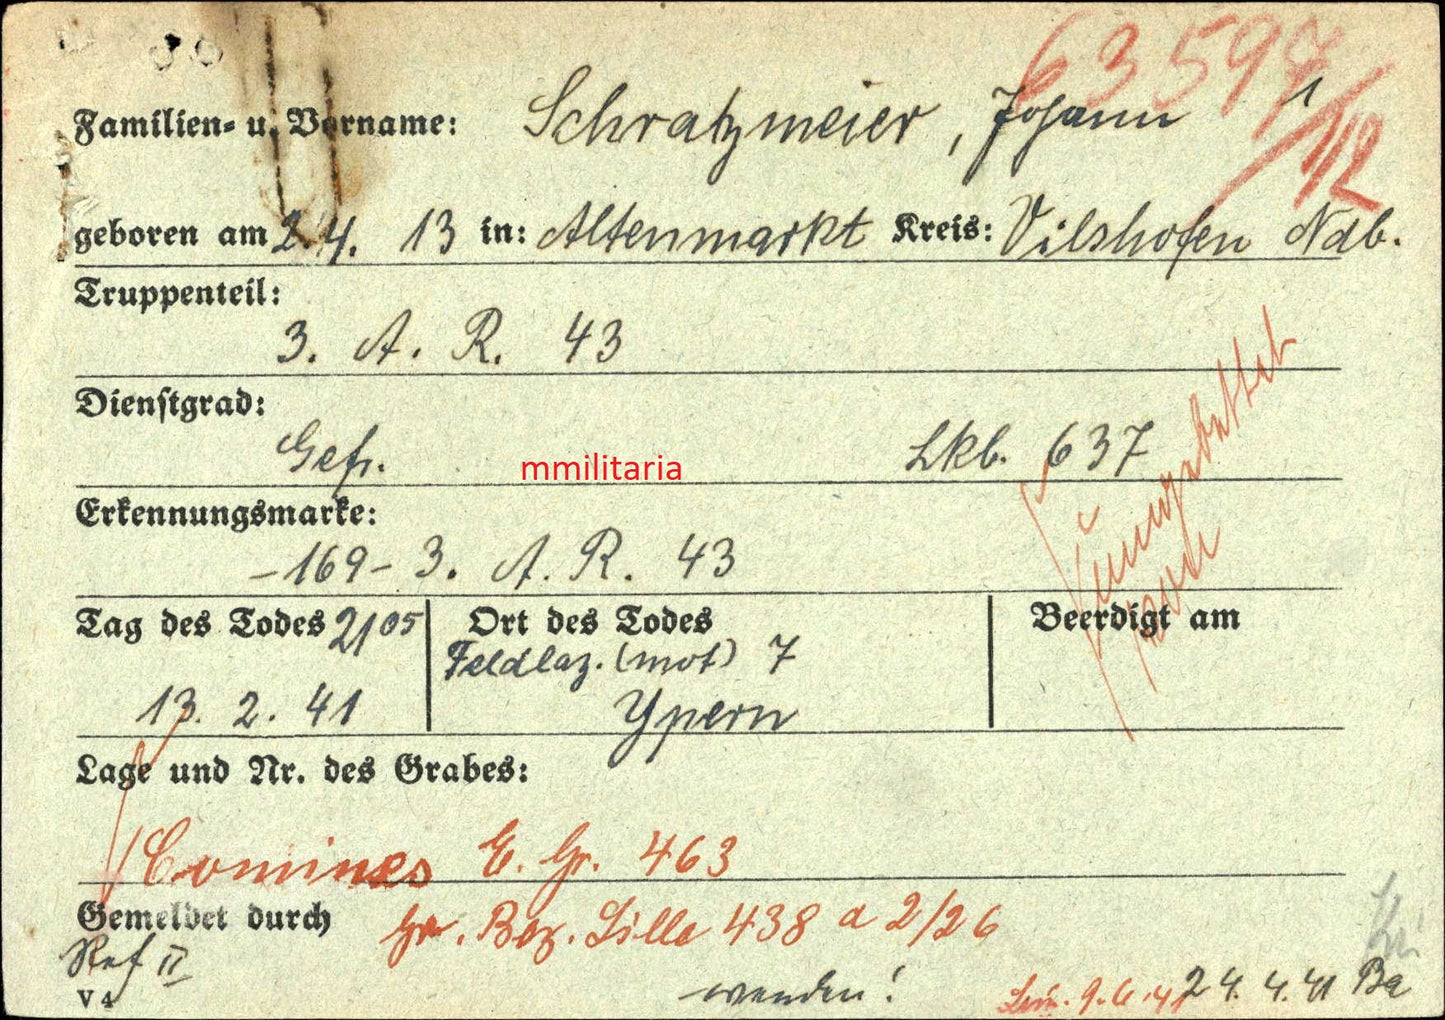 63597/12
Familien- u. Vorname: Schratzmeier, Johann 1
geboren am 2.4. 13 in: Altenmarkt Kreis: Vilshofen Ndb.
Truppenteil:
3. A. R. 43
Dienstgrad:
Gefr. Lkb. 637
mmilitaria
Erkennungsmarke:
-169- 3. A. R. 43
Tag des Todes 2105 Ort des Todes Beerdigt am
Feldlaz. (mot) 7
13. 2. 41 Ypern
Lage und Nr. des Grabes:
Comines E. Gr. 463
Gemeldet durch Gr. Bez. Lille 438 a 2/26
Ref II
wenden! 9.6.41 24. 4. 41 Ba
V 4